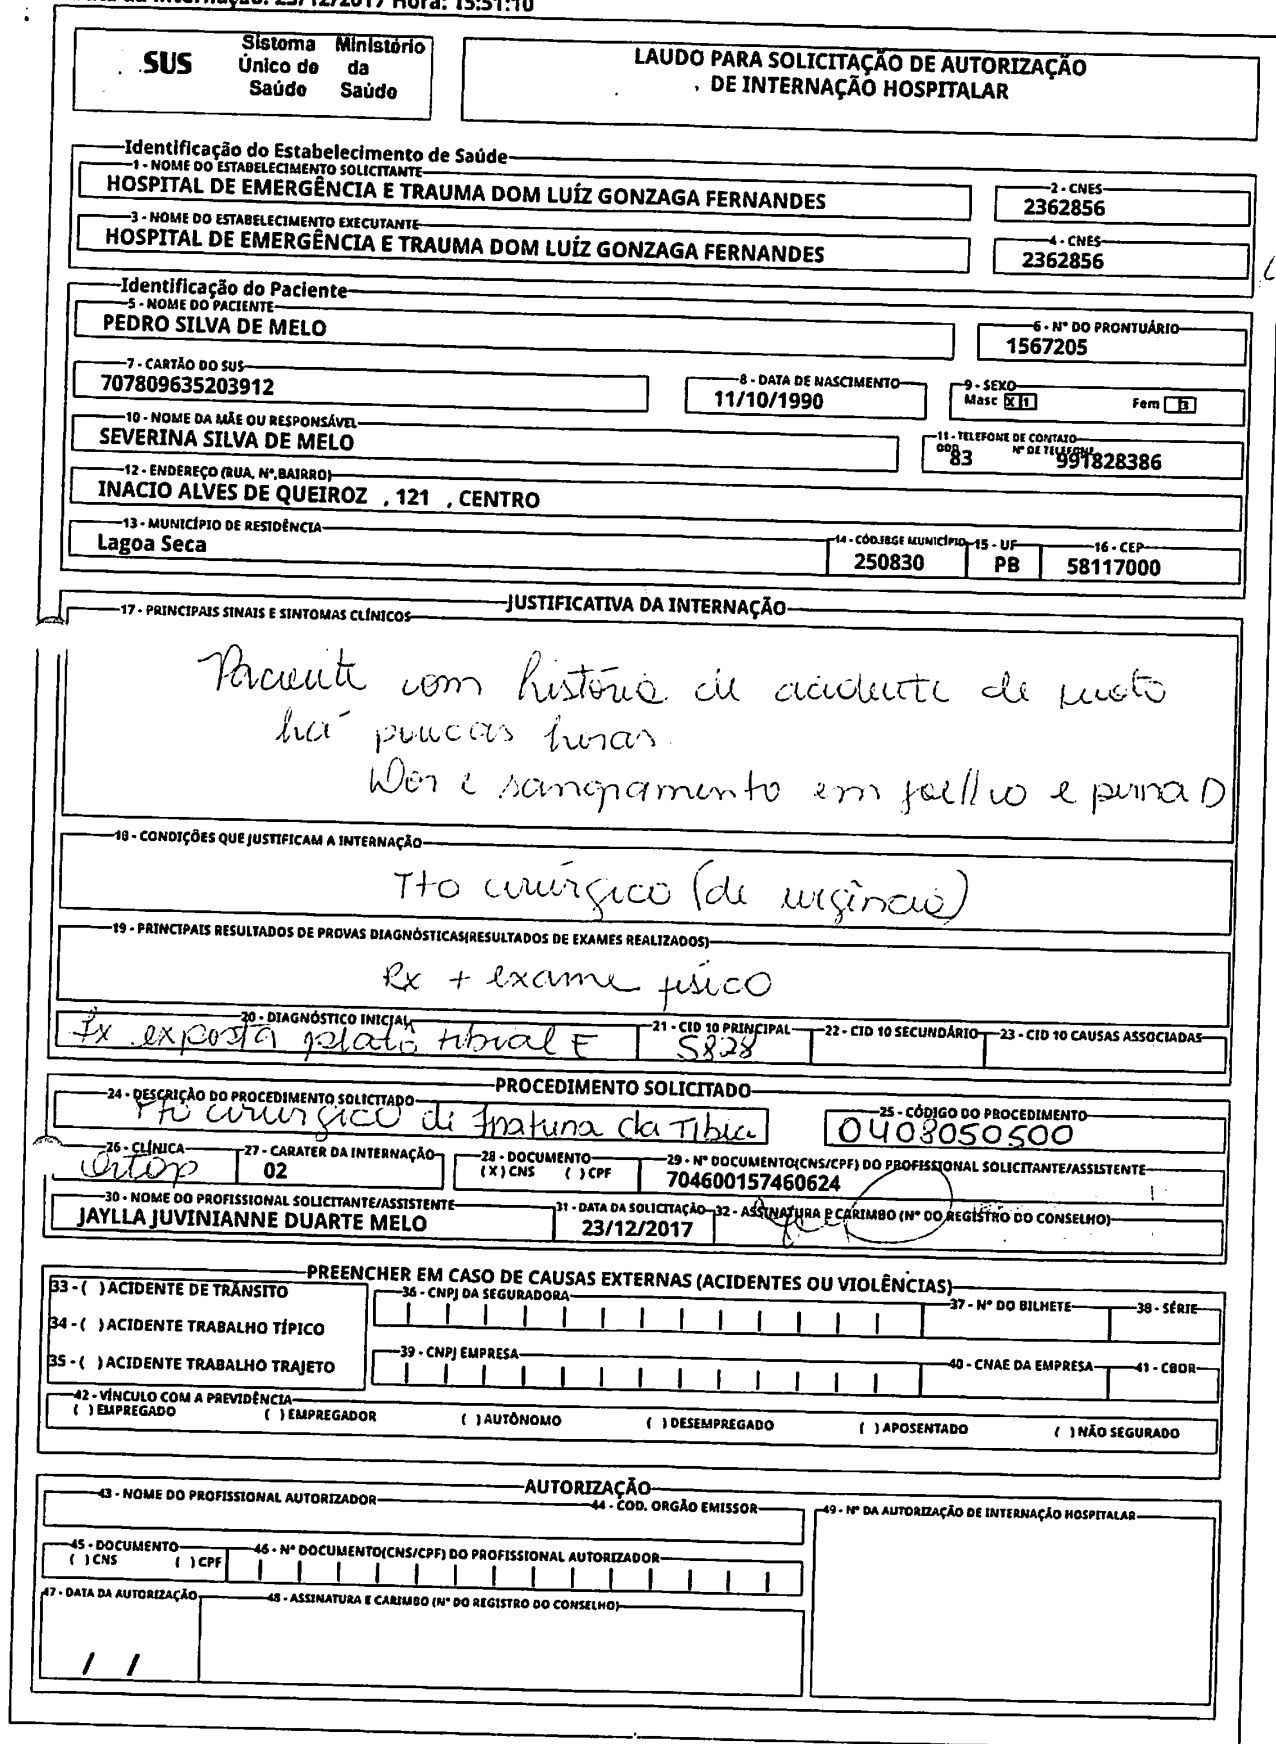 Internação: 23/12/2017 Hora: 15:51:10
SUS
Sistema Ministério
Único de da
Saúde Saúde
LAUDO PARA SOLICITAÇÃO DE AUTORIZAÇÃO
DE INTERNAÇÃO HOSPITALAR
Identificação do Estabelecimento de Saúde
1 - NOME DO ESTABELECIMENTO SOLICITANTE
HOSPITAL DE EMERGÊNCIA E TRAUMA DOM LUÍZ GONZAGA FERNANDES
2 - CNES
2362856
3 - NOME DO ESTABELECIMENTO EXECUTANTE
HOSPITAL DE EMERGÊNCIA E TRAUMA DOM LUÍZ GONZAGA FERNANDES
4 - CNES
2362856
Identificação do Paciente
5 - NOME DO PACIENTE
PEDRO SILVA DE MELO
6 - N° DO PRONTUÁRIO
1567205
7 - CARTÃO DO SUS
707809635203912
8 - DATA DE NASCIMENTO
11/10/1990
9 - SEXO
Masc X 1 Fem 3
10 - NOME DA MÃE OU RESPONSÁVEL
SEVERINA SILVA DE MELO
11 - TELEFONE DE CONTATO
DDD N° DE TELEFONE
83 991828386
12 - ENDEREÇO (RUA, N°,BAIRRO)
INACIO ALVES DE QUEIROZ , 121 , CENTRO
13 - MUNICÍPIO DE RESIDÊNCIA
Lagoa Seca
14 - CÓD.IBGE MUNICÍPIO
250830
15 - UF
PB
16 - CEP
58117000
JUSTIFICATIVA DA INTERNAÇÃO
17 - PRINCIPAIS SINAIS E SINTOMAS CLÍNICOS
Paciente com história de acidente de moto
há poucas horas.
Dor e sangramento em joelho e perna D
18 - CONDIÇÕES QUE JUSTIFICAM A INTERNAÇÃO
Tto cirúrgico (de urgência)
19 - PRINCIPAIS RESULTADOS DE PROVAS DIAGNÓSTICAS(RESULTADOS DE EXAMES REALIZADOS)
Rx + exame físico
20 - DIAGNÓSTICO INICIAL
Fx exposta platô tibial E
21 - CID 10 PRINCIPAL
S828
22 - CID 10 SECUNDÁRIO
23 - CID 10 CAUSAS ASSOCIADAS
PROCEDIMENTO SOLICITADO
24 - DESCRIÇÃO DO PROCEDIMENTO SOLICITADO
Tto cirurgico de Fratura da Tibia
25 - CÓDIGO DO PROCEDIMENTO
0408050500
26 - CLÍNICA
Ortop
27 - CARATER DA INTERNAÇÃO
02
28 - DOCUMENTO
(X) CNS ( ) CPF
29 - N° DOCUMENTO(CNS/CPF) DO PROFISSIONAL SOLICITANTE/ASSISTENTE
704600157460624
30 - NOME DO PROFISSIONAL SOLICITANTE/ASSISTENTE
JAYLLA JUVINIANNE DUARTE MELO
31 - DATA DA SOLICITAÇÃO
23/12/2017
32 - ASSINATURA E CARIMBO (N° DO REGISTRO DO CONSELHO)
PREENCHER EM CASO DE CAUSAS EXTERNAS (ACIDENTES OU VIOLÊNCIAS)
33 - ( ) ACIDENTE DE TRÂNSITO
34 - ( ) ACIDENTE TRABALHO TÍPICO
35 - ( ) ACIDENTE TRABALHO TRAJETO
36 - CNPJ DA SEGURADORA
37 - N° DO BILHETE
38 - SÉRIE
39 - CNPJ EMPRESA
40 - CNAE DA EMPRESA
41 - CBOR
42 - VÍNCULO COM A PREVIDÊNCIA
( ) EMPREGADO ( ) EMPREGADOR ( ) AUTÔNOMO ( ) DESEMPREGADO ( ) APOSENTADO ( ) NÃO SEGURADO
AUTORIZAÇÃO
43 - NOME DO PROFISSIONAL AUTORIZADOR
44 - COD. ORGÃO EMISSOR
49 - N° DA AUTORIZAÇÃO DE INTERNAÇÃO HOSPITALAR
45 - DOCUMENTO
( ) CNS ( ) CPF
46 - N° DOCUMENTO(CNS/CPF) DO PROFISSIONAL AUTORIZADOR
47 - DATA DA AUTORIZAÇÃO
/ /
48 - ASSINATURA E CARIMBO (N° DO REGISTRO DO CONSELHO)